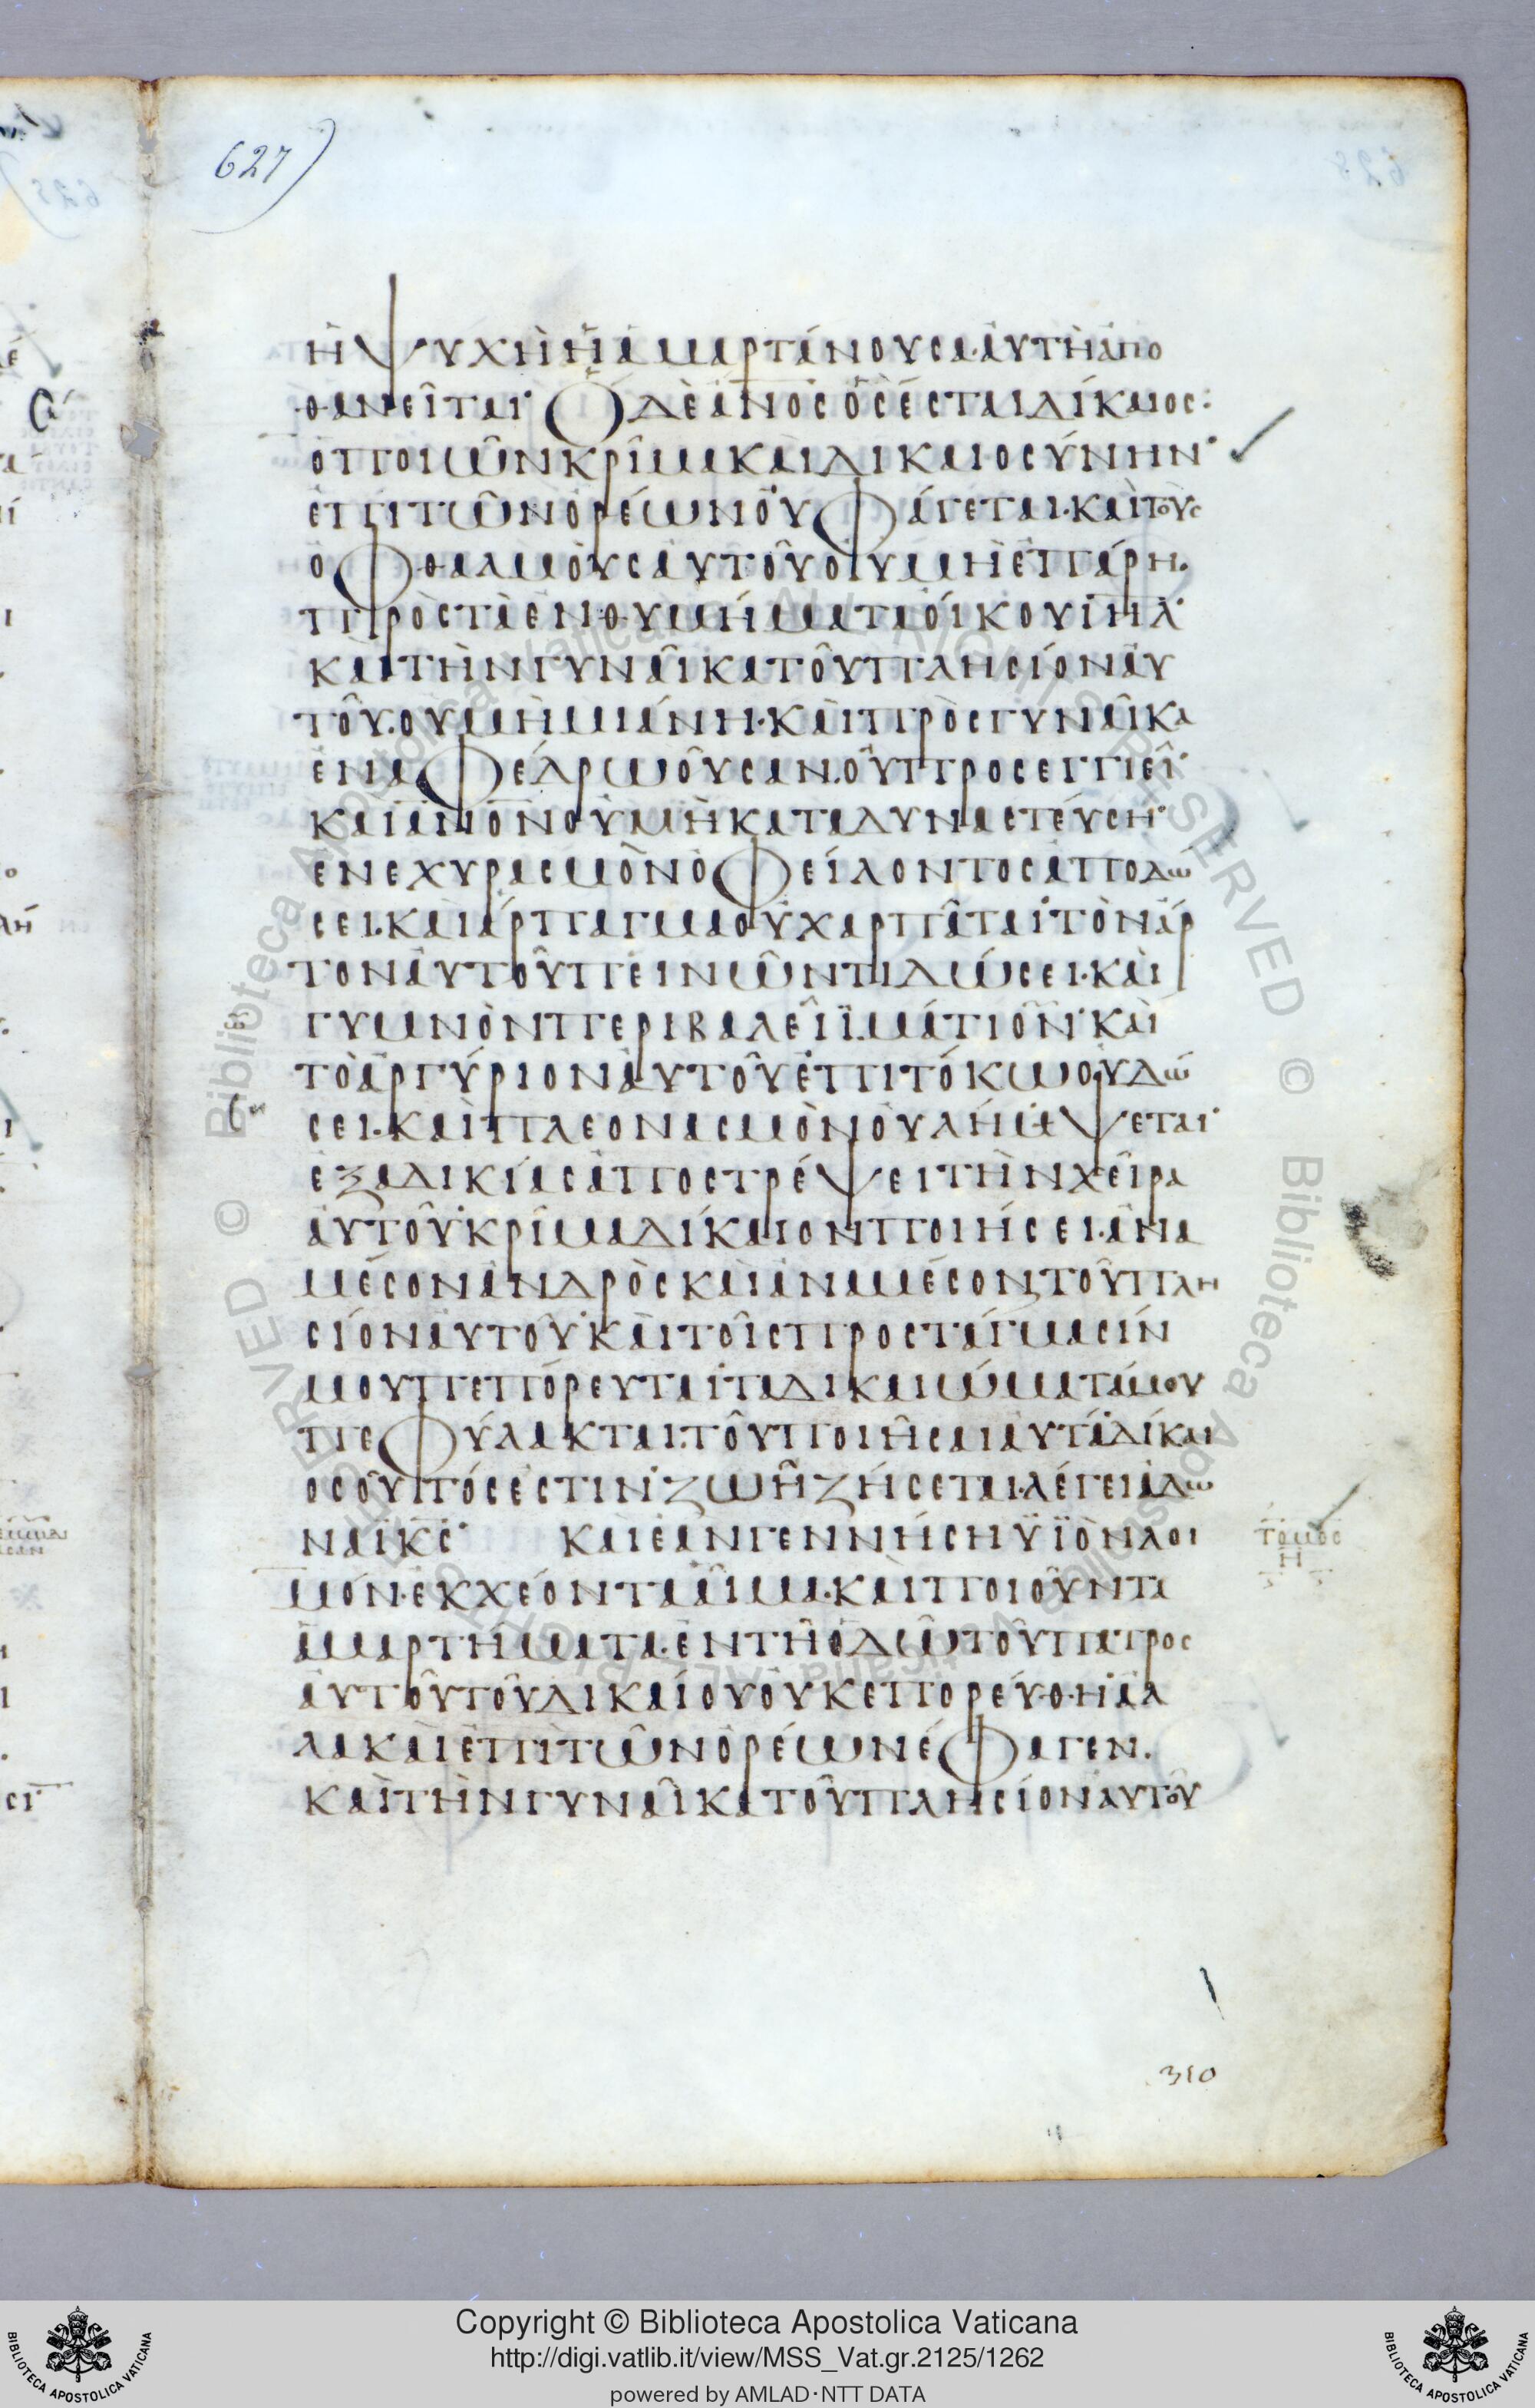 627)
ἡ ψυχὴ ἡ ἁμαρτάνουσα· ἀυτὴ ἀπο
θανεῖται· Ὁ δὲ ἀνος ὃς ἐσται δίκαιος:
ὁ ποιῶν κρῖμα καὶ δικαιοσύνην·
ἐπὶ τῶν ὀρέων ὀυ φάγεται· καὶ τοὺς
ὀφθαλμοὺς ἀυτοῦ ὀυ μὴ ἐπάρη·
πρὸς τὰ ἐνθυμήματα ὀίκου ιηλ·
καὶ τὴν γυναῖκα τοῦ πλησίον ἀυ
τοῦ· ου μὴ μιάνη· καὶ πρὸς γυναῖκα
ἐν αφέδρω οῦσαν· ὀυ προσεγγιεῖ·
καὶ ανον ὀυ μὴ καταδυναστέυση·
ενεχυρασμὸν ὀφείλοντος ἀποδώ
σει· καὶ ἁρπαγμα ὀυχ αρπᾶται· τὸν ἄρ
τον ἀυτοῦ πεινῶντι δώσει· καὶ
γυμνὸν περιβαλεῖ ϊμάτιον· καὶ
τὸ ἀργύριον ἀυτοῦ ἐπι τόκω ου δώ
σει· καὶ πλεονασμὸν ὀυ λήμψεται·
ἐξ αδικίας ἀποστρέψει τὴν χεῖρα
ἀυτοῦ· κρῖμα δίκαιον ποιήσει· ἀνα
μέσον ἀνδρὸς καὶ ἀναμέσον τοῦ πλη
σίον ἀυτοῦ· καὶ τοῖς προστάγμασίν
μου πεπόρευται· τα δικαιώματά μου
πεφύλακται· τοῦ ποιῆσαι ἀυτά· δίκαι
ος οῦτός ἐστιν· ζωῆ ζήσεται· λέγει ἀδω
ναϊ κς· καὶ ἐὰν γεννήση ϋϊὸν λοι
μόν· εκχέοντα ἁῖμα· καὶ ποιοῦντα
ἁμαρτήματα· ἐν τῆ ὁδῶ τοῦ πατρος
ἀυτοῦ τοῦ δικαίου ὀυκ επορέυθη· ἀλ
λα καὶ ἐπὶ τῶν ὀρέων ἐφαγεν·
καὶ τὴν γυναῖκα τοῦ πλησίον ἀυτοῦ
τομος
η
310
Copyright © Biblioteca Apostolica Vaticana
http://digi.vatlib.it/view/MSS_Vat.gr.2125/1262
powered by AMLAD·NTT DATA